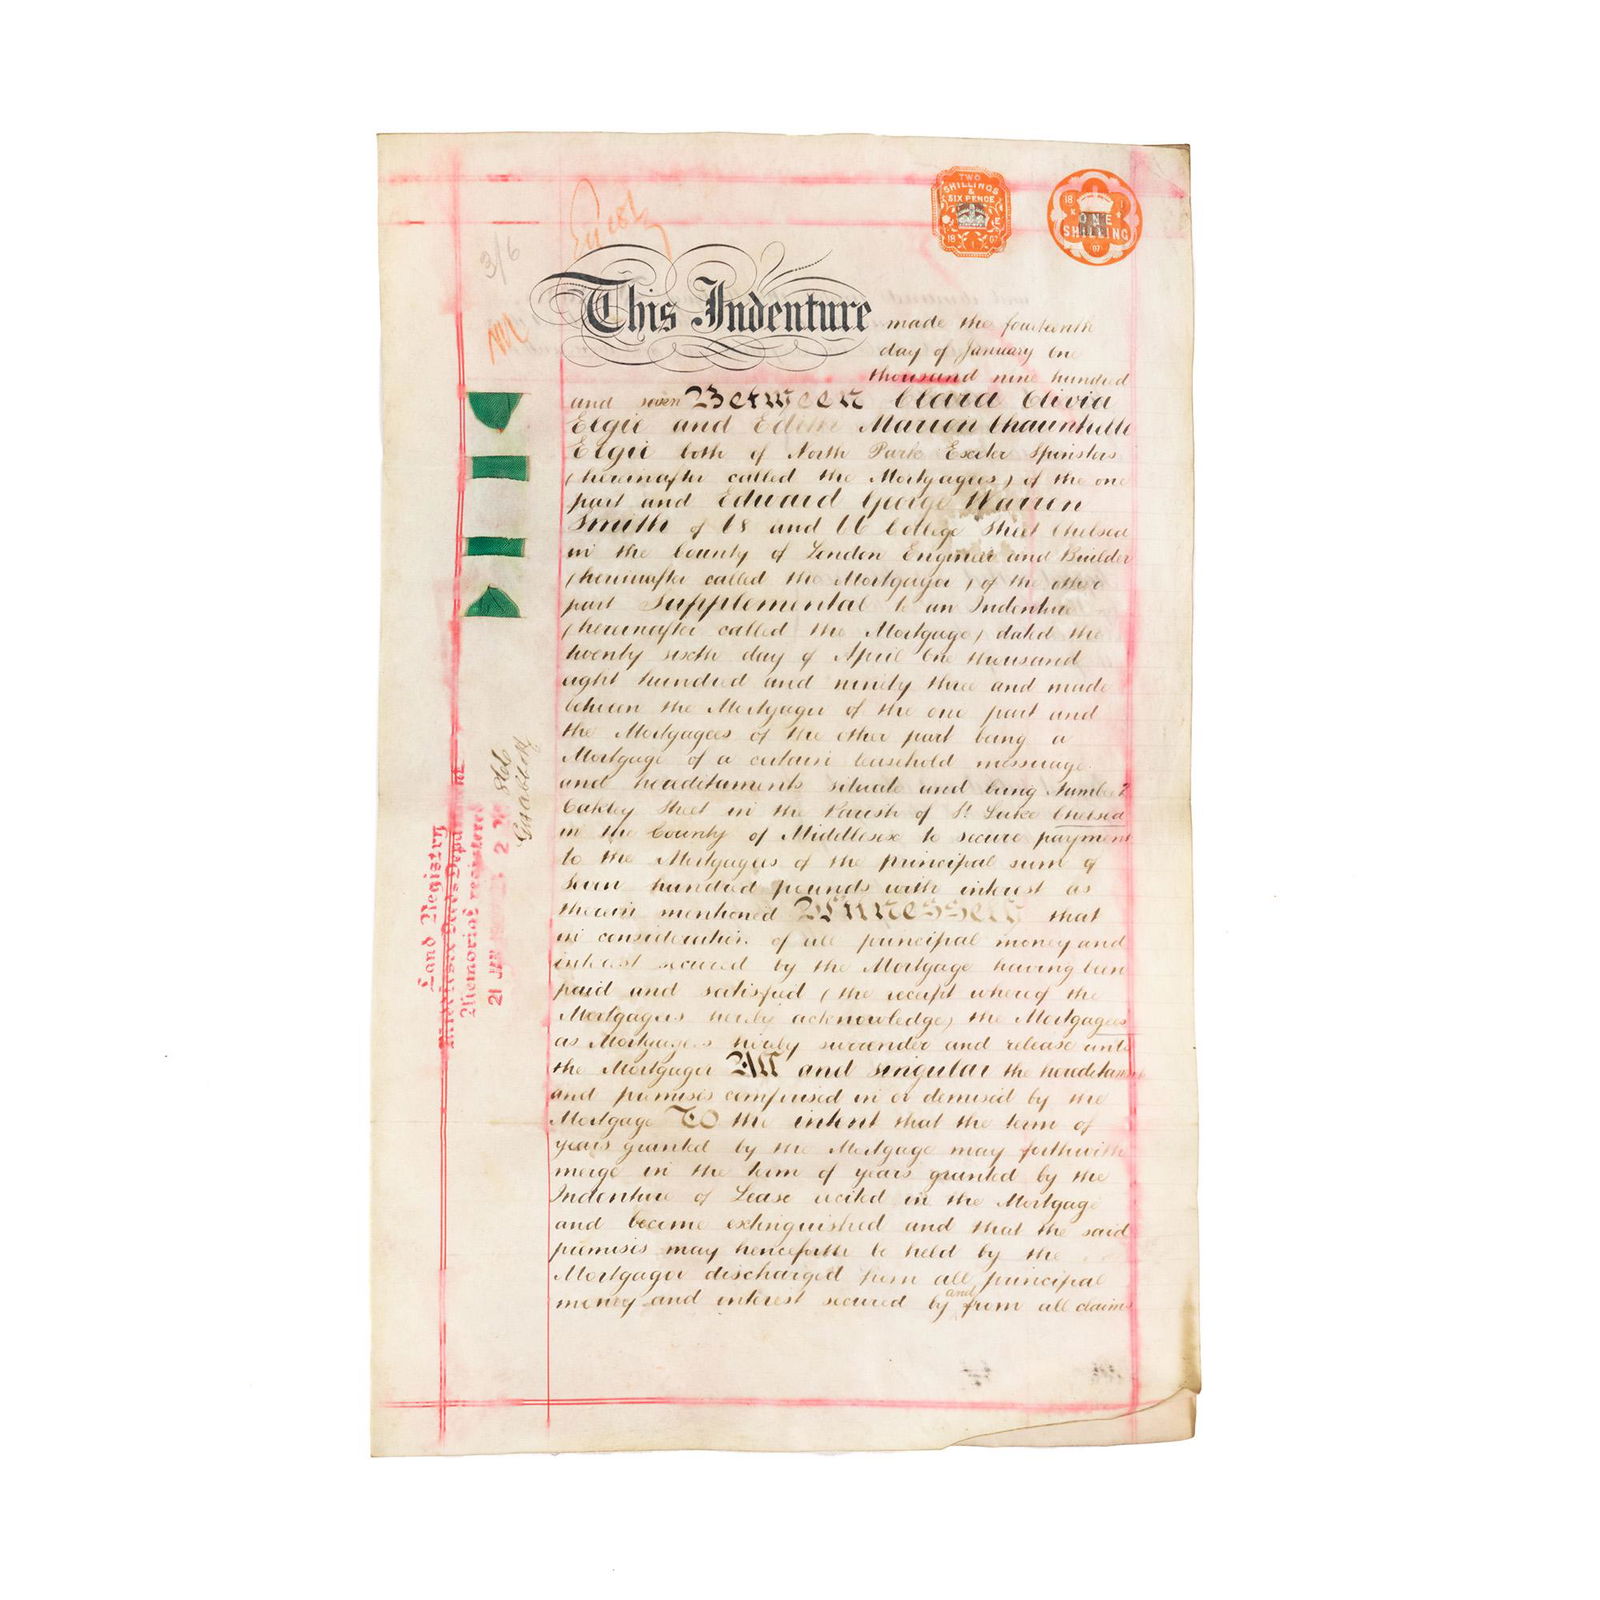 TWO
SHILLINGS
&
SIX PENCE
18 07
ONE
SHILLING
07
3/6
This Indenture made the fourteenth
day of January One
thousand nine hundred
and seven Between Clara Olivia
Elgie and Edith Marion Chaunhille
Elgie both of North Park Exeter Spinsters
(hereinafter called the Mortgagees) of the one
part and Edward George Warren
Smith of 18 and 16 College Street Chelsea
in the County of London Engineer and Builder
(hereinafter called the Mortgagor) of the other
part Supplemental to an Indenture
(hereinafter called the Mortgage) dated the
twenty sixth day of April One thousand
eight hundred and ninety three and made
between the Mortgagor of the one part and
the Mortgagees of the other part being a
Mortgage of a certain leasehold messuage
and hereditaments situate and being Number 7
Oakley Street in the Parish of St Luke Chelsea
in the County of Middlesex to secure payment
to the Mortgagees of the principal sum of
seven hundred pounds with interest as
therein mentioned Witnesseth that
in consideration of all principal money and
interest secured by the Mortgage having been
paid and satisfied (the receipt whereof the
Mortgagees hereby acknowledge) the Mortgagees
as Mortgagees hereby surrender and release unto
the Mortgagor All and singular the hereditaments
and premises comprised in or demised by the
Mortgage To the intent that the term of
years granted by the Mortgage may forthwith
merge in the term of years granted by the
Indenture of Lease recited in the Mortgage
and become extinguished and that the said
premises may henceforth be held by the
Mortgagor discharged from all principal
money and interest secured by and from all claims
Land Registry
Middlesex Deeds Department
Memorial registered
21 JAN 2 866